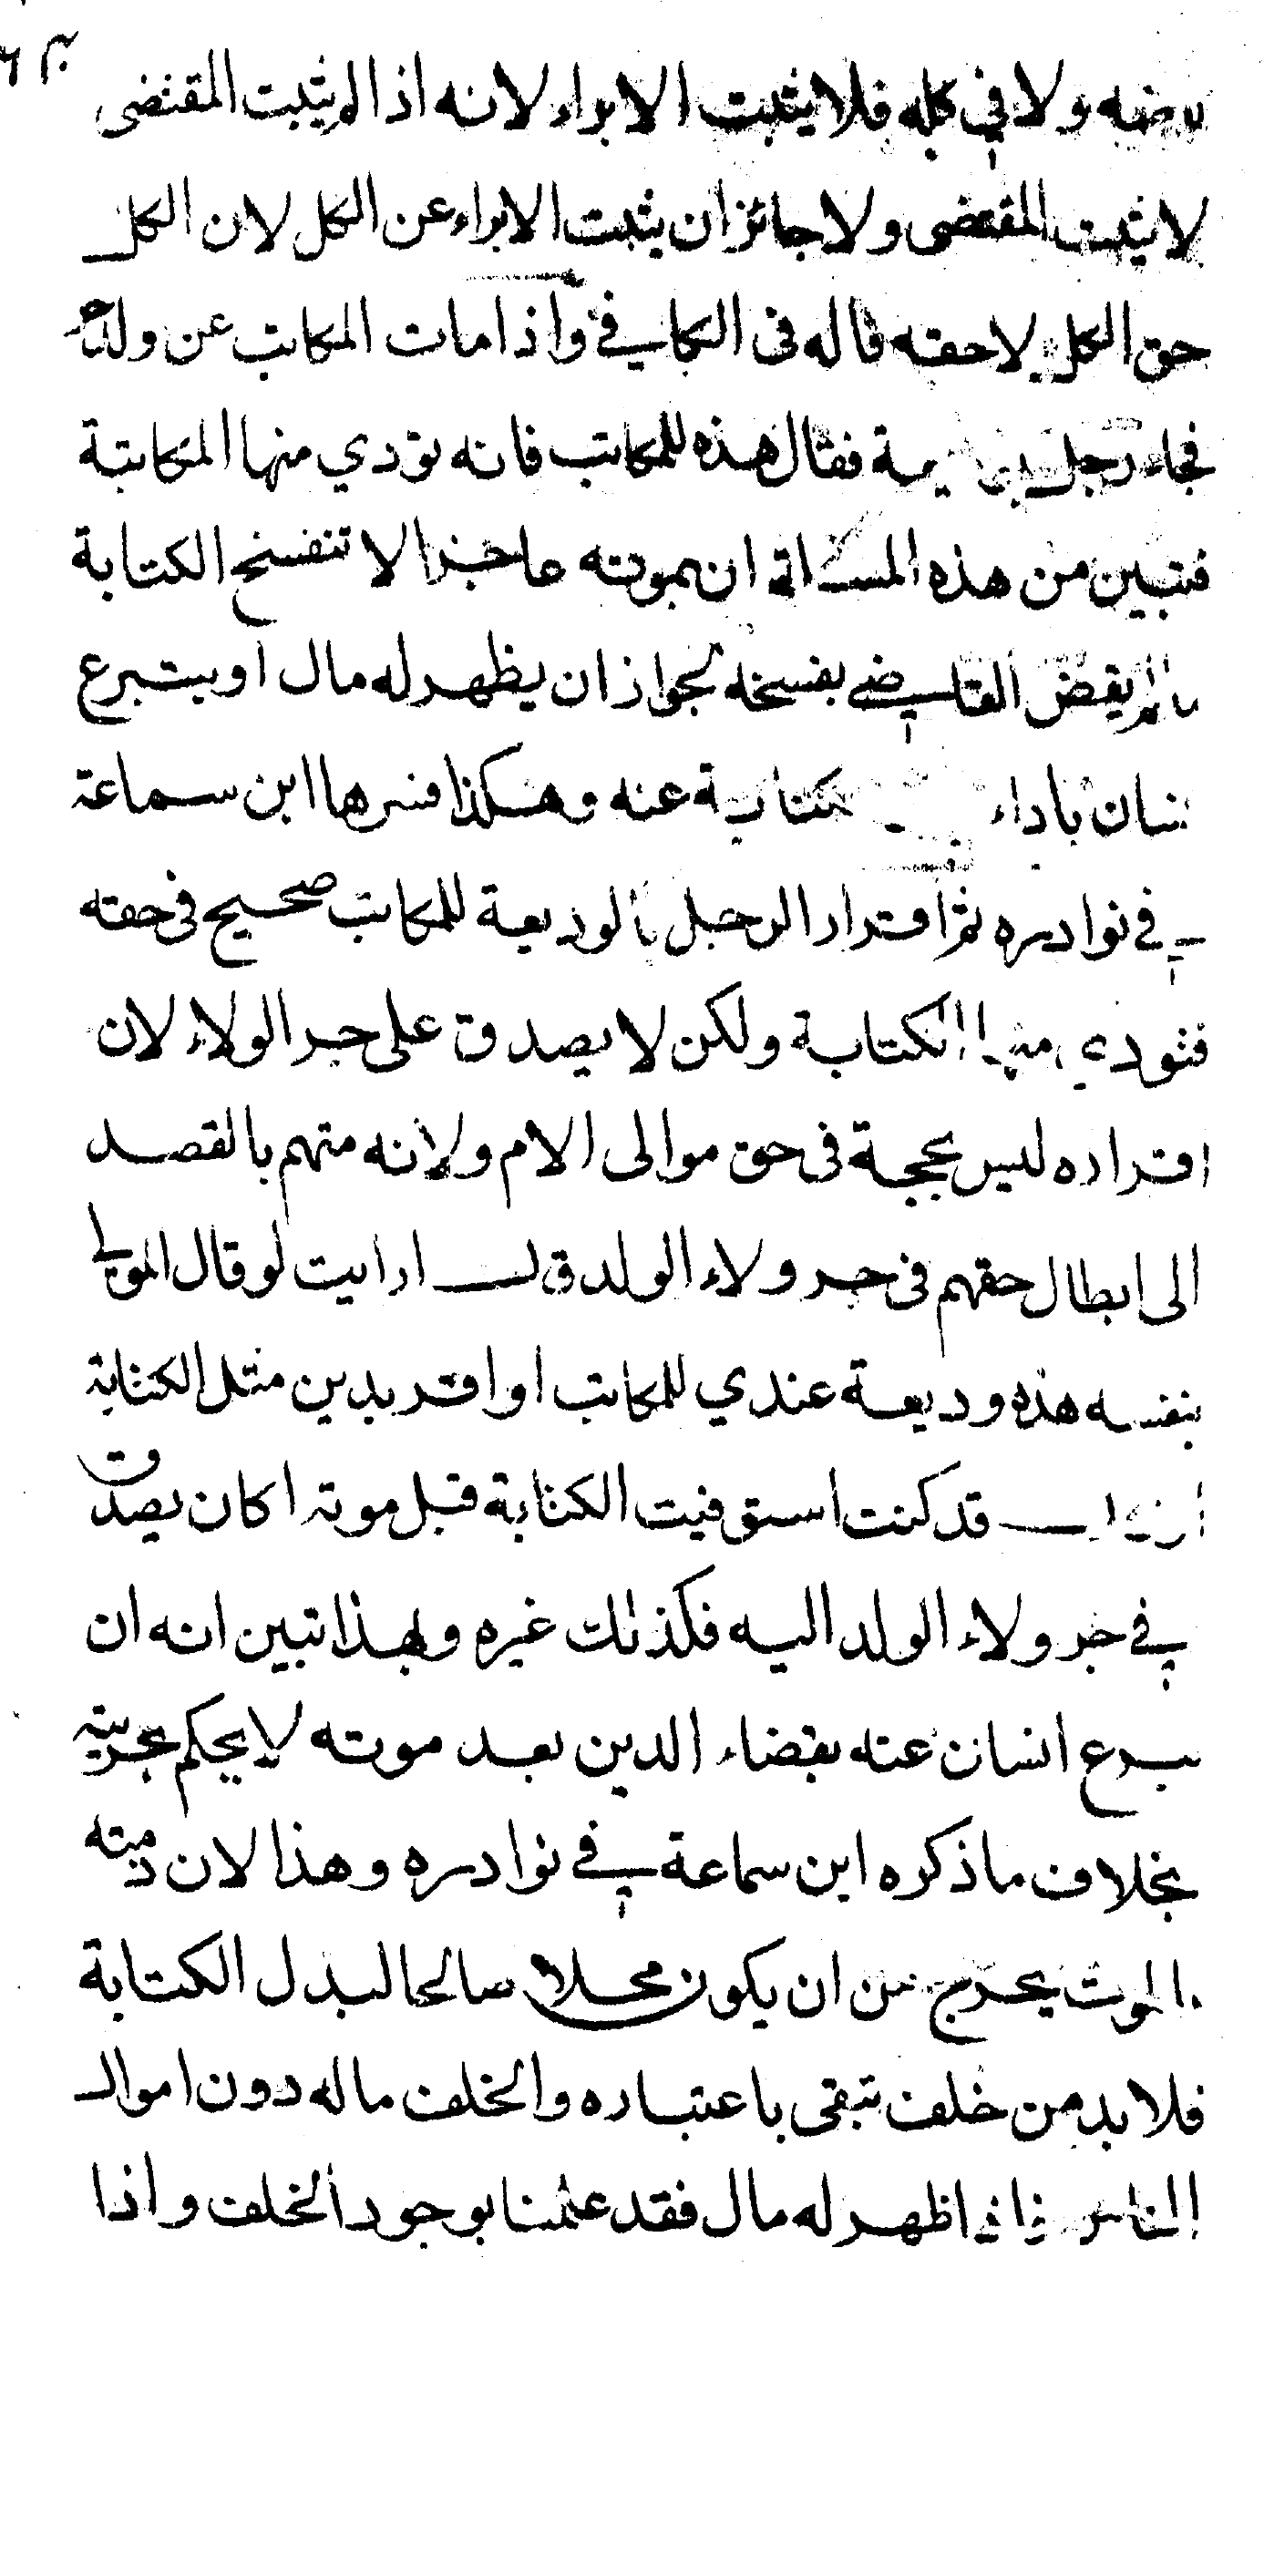 ولا في كله فلا يثبت الابراء لانه اذا لم يثبت المقتضى
لا يثبت المقتضى ولا جائز ان يثبت الابراء عن الكل لان الكل
حق الكل لا حقه قاله في الكافي واذا مات المكاتب عن ولد
فجاء رجل فقال هذه للمكاتب فانه تودي منها المكاتبة
فتبين من هذه المسالة ان بموته عاجزا لا تنفسخ الكتابة
مالم يقض القاضي بفسخه لجواز ان يظهر له مال او يتبرع
باداء عنه وهكذا فسرها ابن سماعة
في نوادره ثم اقرار الرجل بالوديعة للمكاتب صحيح في حقه
فتودي منها الكتابة ولكن لا يصدق على جر الولاء لان
اقراره ليس بحجة في حق موالى الام ولانه متهم بالقصد
الى ابطال حقهم في جر ولاء الولد قال ارايت لو قال المولى
بنفسه هذه وديعة عندي للمكاتب او اقر بدين مثل الكتابة
قد كنت استوفيت الكتابة قبل موته اكان يصدق
في جر ولاء الولد اليه فكذلك غيره وبهذا تبين انه ان
تبرع انسان عنه بقضاء الدين بعد موته لا يحكم بحريته
بخلاف ما ذكره ابن سماعة في نوادره وهذا لان ذمته
بالموت يخرج من ان يكون محلا صالحا لبدل الكتابة
فلا بد من خلف تبقى باعتباره والخلف ماله دون اموال
الناس فاذا ظهر له مال فقد علمنا بوجود الخلف واذا